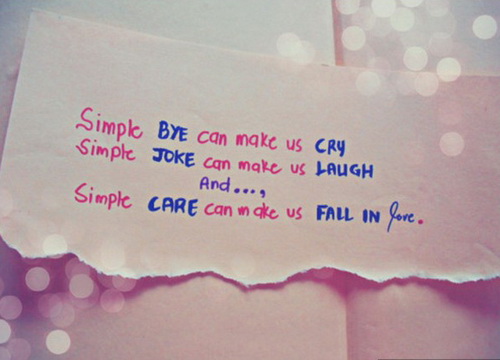 Simple BYE can make us CRY
Simple JOKE can make us LAUGH
And...,
Simple CARE can make us FALL IN love.